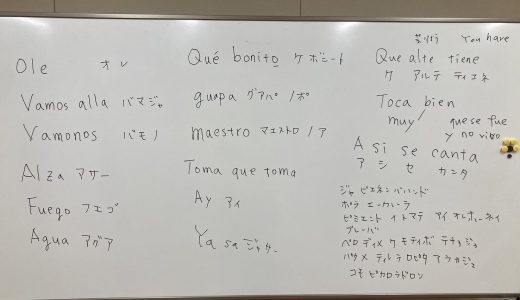 Ole オレ
Vamos alla バマジャ
Vamonos バモノ
Alza アサー
Fuego フエゴ
Agua アグア
Qué bonito ケ ボニート
guapa グアパ/ポ
maestro マエストロ/ア
Toma que toma
Ay アイ
Ya sa ジャサー
You have
Que alte tiene
ケ アルテ ティエネ
Toca bien
muy
que se fue
y no vino
A si se canta
ア シ セ カンタ
ジャ ビエネン バハンド
ポラ エーカレーラ
ピミエント イ トマテ アイ オレホーネイ
ブレーバ
ペロ ディメ ケ モティボ テナジュ
コモ ピカロ ラドロン